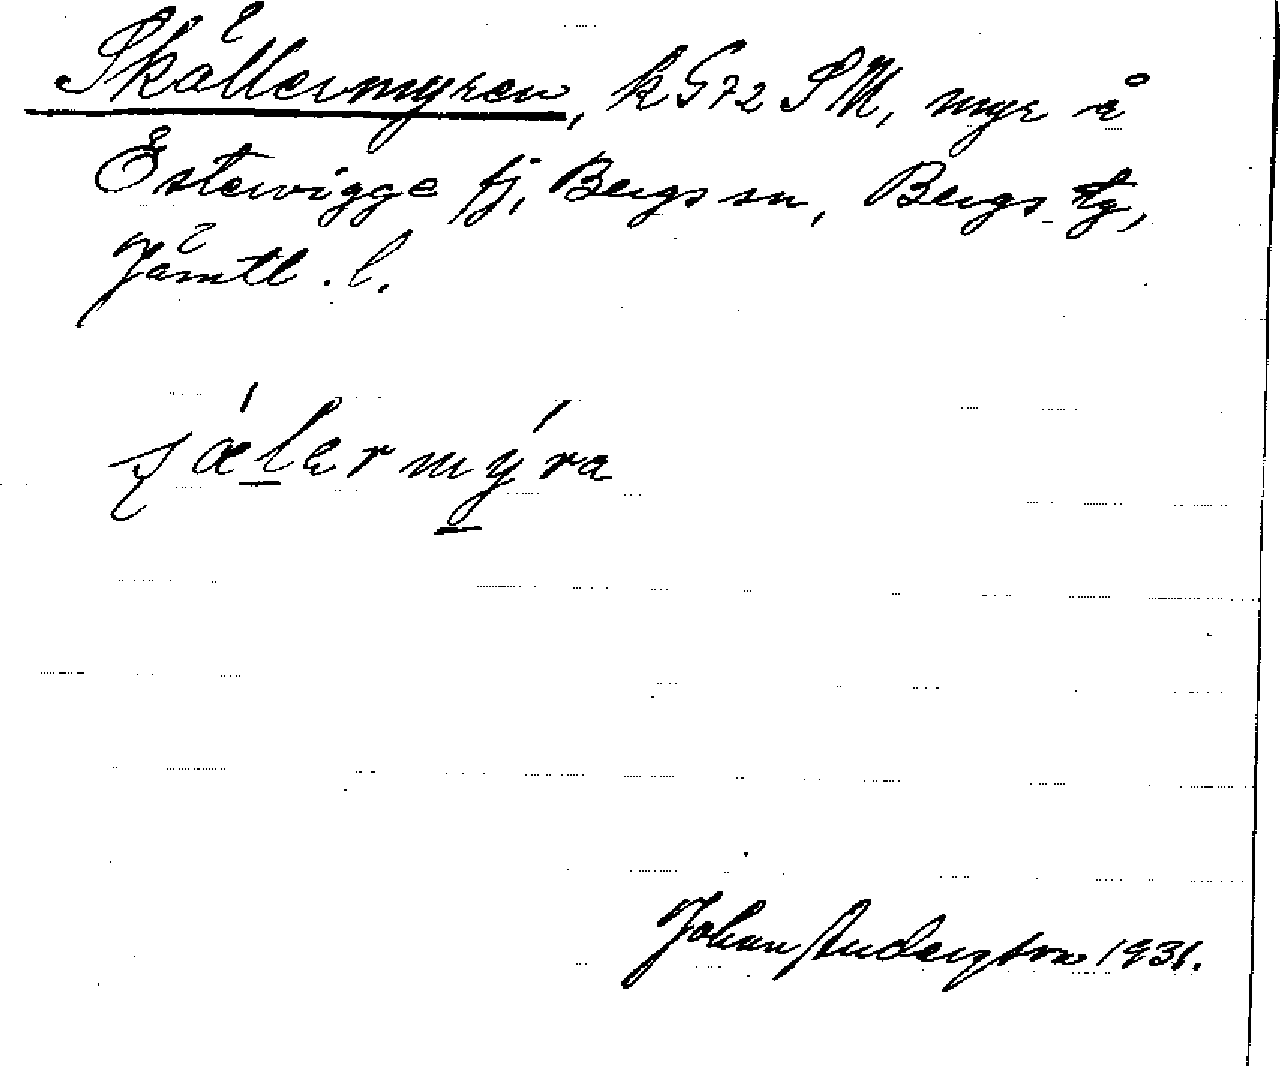 Skällermyren, k G 72 SM, myr å
Östervigge fj, Bergs sn, Bergs tg,
Jämtl. l.
ʃælermýra
Johan Anderzhon 1931.